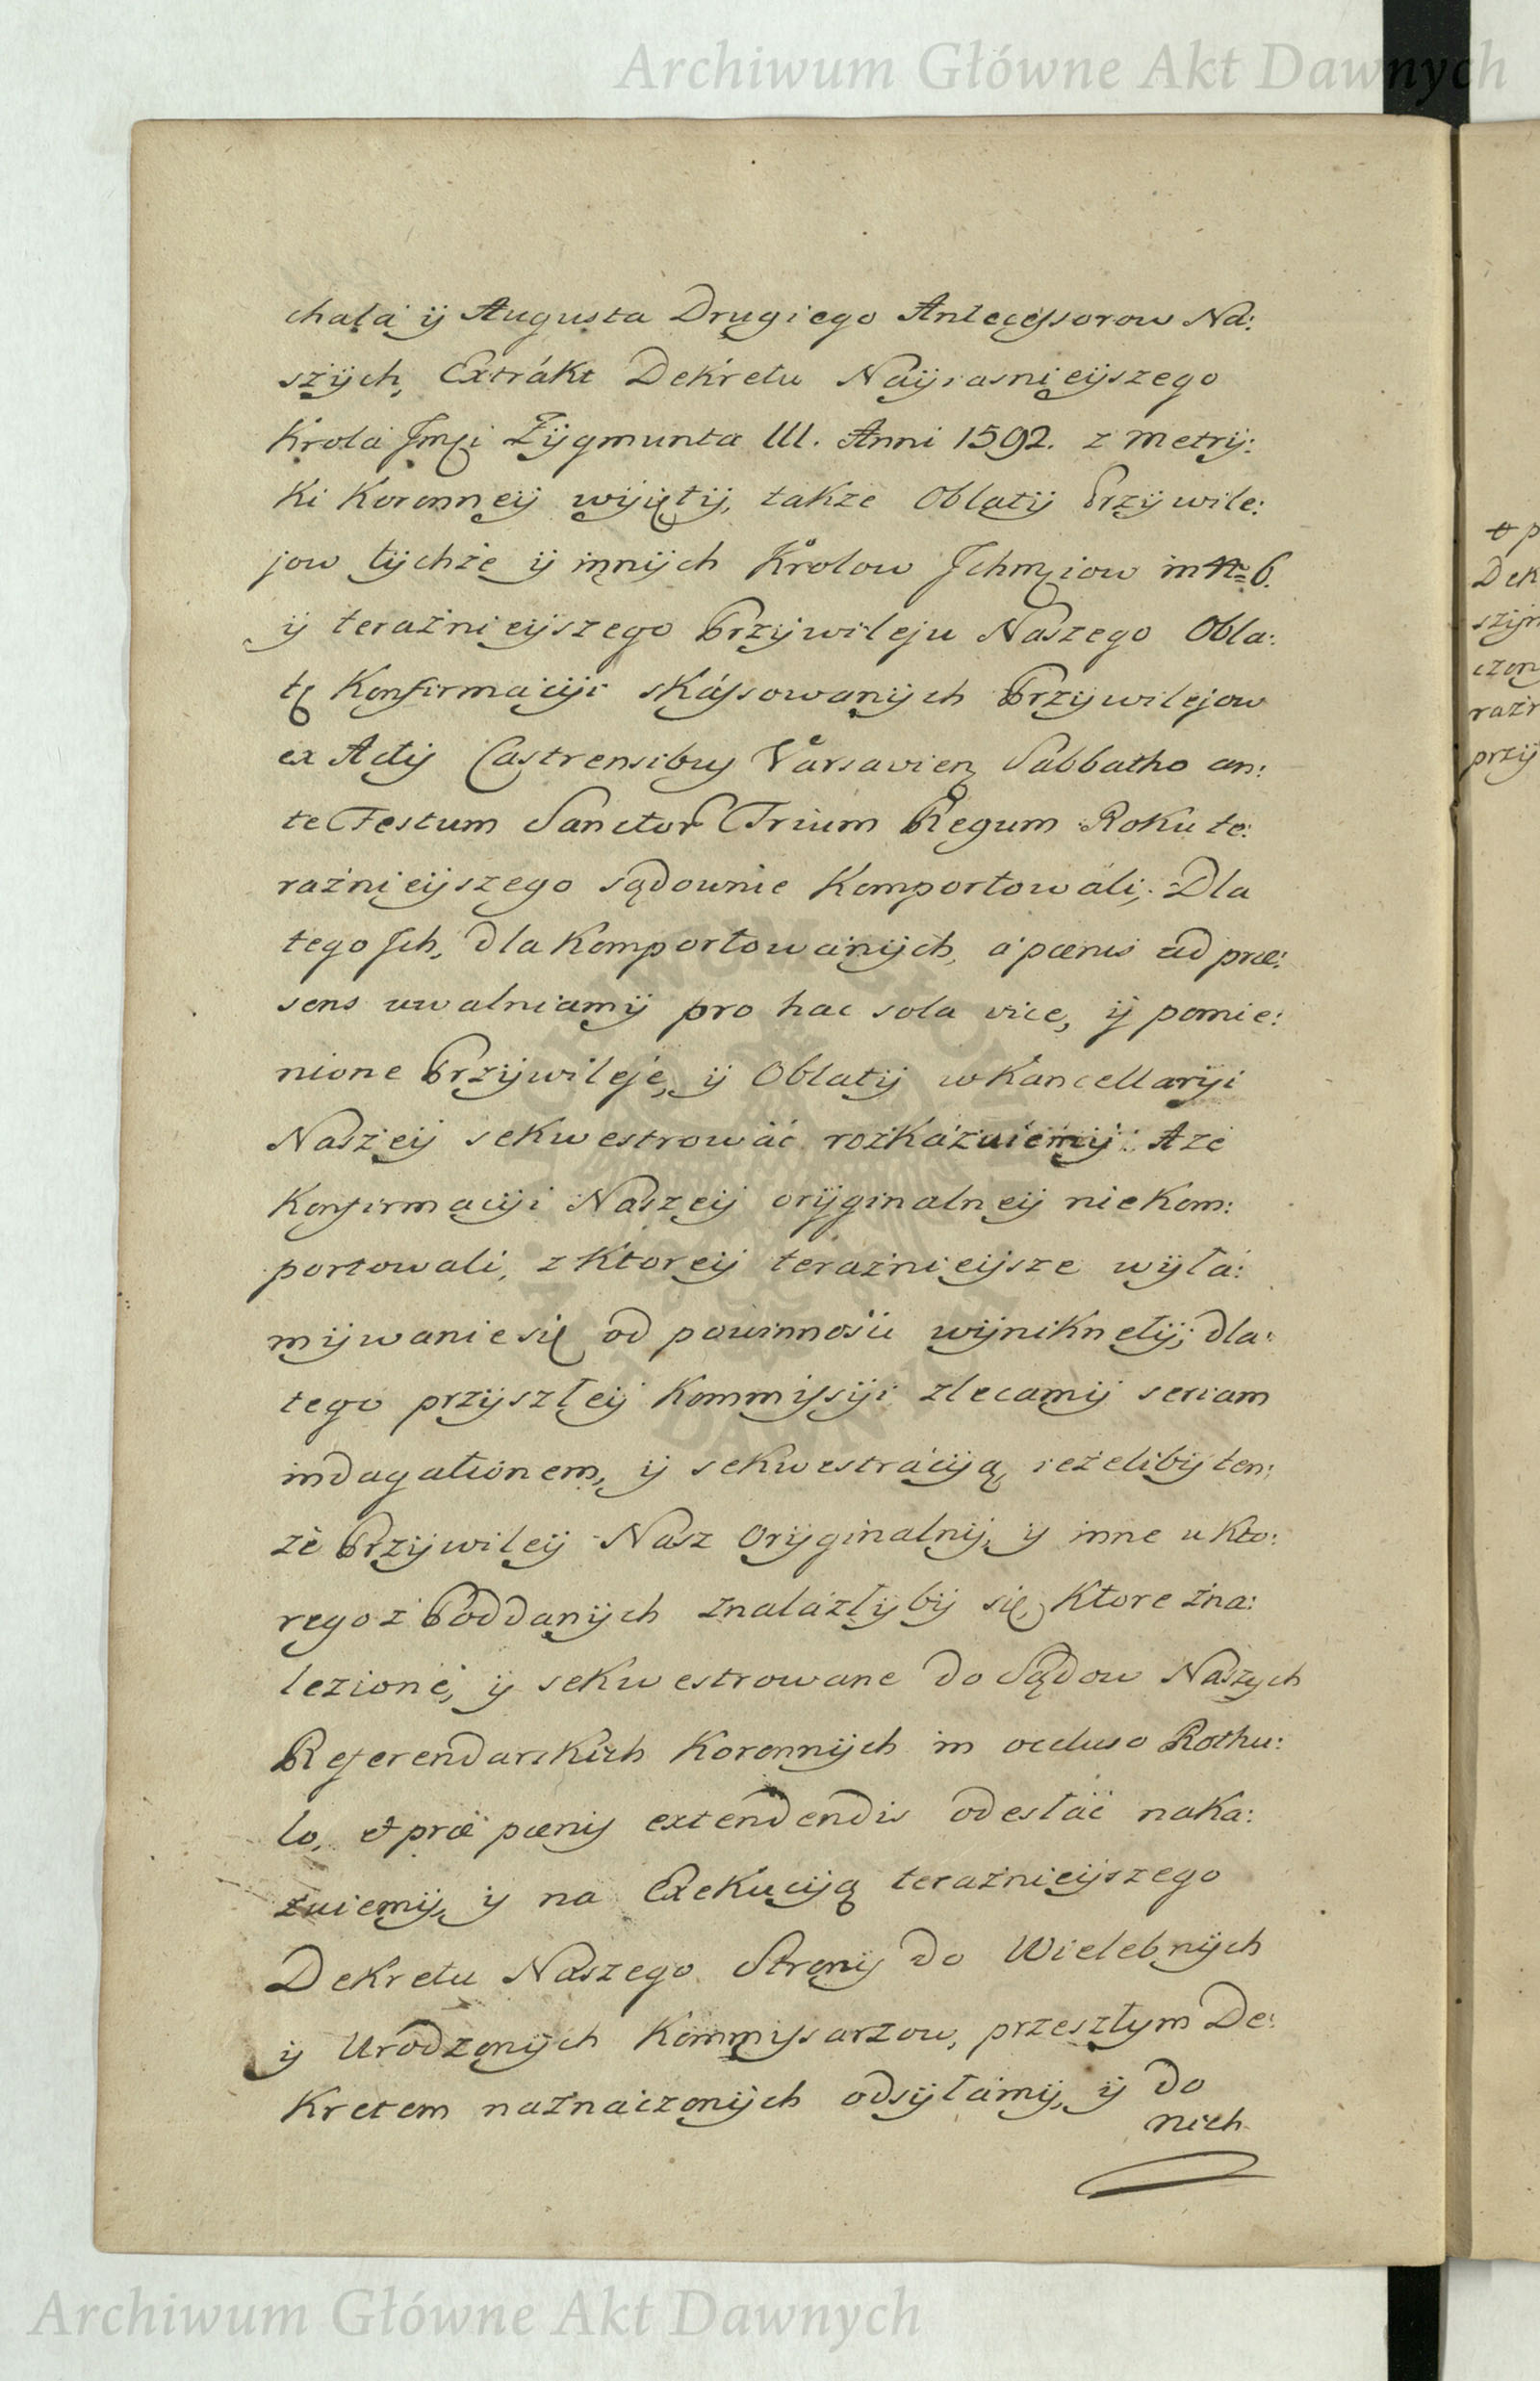 Archiwum Główne Akt Dawnych
chała ij Augusta Drugiego Antecessorow Na:
szijch, Extrakt Dekretu Naijiasnieijszego
Krola Jmci Zijgmunta III. Anni 1592. z Metrij:
ki Koronneij wijiętij, takze Oblatij Przijwile:
jow tijchże ij innijch Krolow Jchmciow in No 6.
ij teraznieijszego Przijwileju Naszego Obla:
tę Konfirmaciji skassowanijch Przijwilejow
ex Actis Castrensibus Varsavien Sabbatho an:
te Festum Sanctor Trium Regum Roku te:
raznieijszego sądownie Komportowali; Dla
tego Jch, dla Komportowanijch, a pænis ad præ:
sens uwalniamij pro hac sola vice, ij pomie:
nione Przijwileje, ij Oblatij w Kancellariji
Naszeij sekwestrować rozkazuiemij: A ze
Konfirmaciji Naszeij orijginalneij nie Kom:
portowali, z Ktoreij teraznieijsze wijła:
mijwanie się od powinności wijniknełij; dla:
tego przijszłeij Kommissiji zlecamij seriam
indagationem, ij sekwestraciją, ieżelibij ten:
że Przijwileij Nasz Orijginalnij, ij inne u Kto:
rego z Poddanijch znalazłijbij się, Ktore zna:
lezione, ij sekwestrowane do Sądow Naszych
Referendarskich Koronnijch in occluso Rothu:
lo, et præ pænis extendendis odesłać naka:
zuiemij, ij na Exekuciją teraznieijszego
Dekretu Naszego Stronij do Wielebnijch
ij Urodzonijch Kommissarzow, przeszłym De:
kretem naznaczonijch odsijłamij, ij do
nich
p
Dek
szijm
czon
razn
przij
Archiwum Główne Akt Dawnych